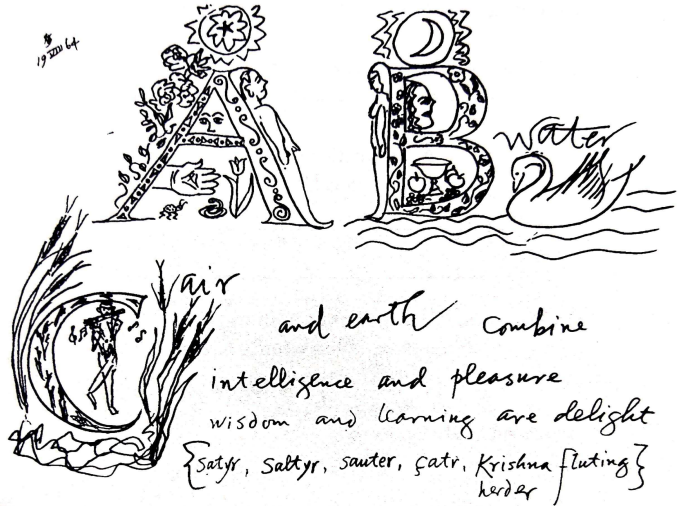 19 VIII 64
A B water
C air
and earth combine
intelligence and pleasure
wisdom and learning are delight
{satyr, saltyr, sauter, çatr, Krishna fluting}
herder